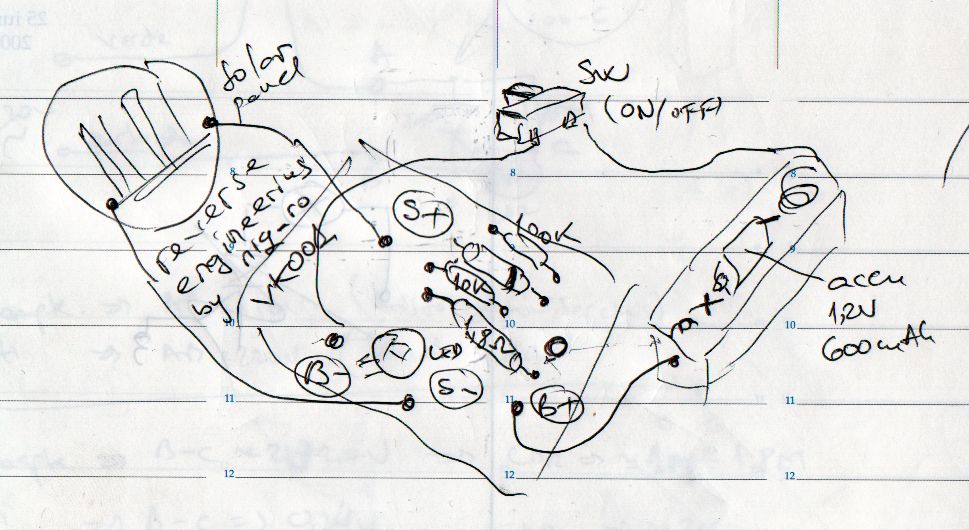 25 iu
200
Solar
panel
SW
(ON/OFF)
re-verse
engineering
by niq-ro
VK001
S+
100K
10K
1,8Ω
D
LED
B-
S-
B+
accu
1,2V
600mAh
8
8
9
9
10
10
10
11
11
11
12
12
12